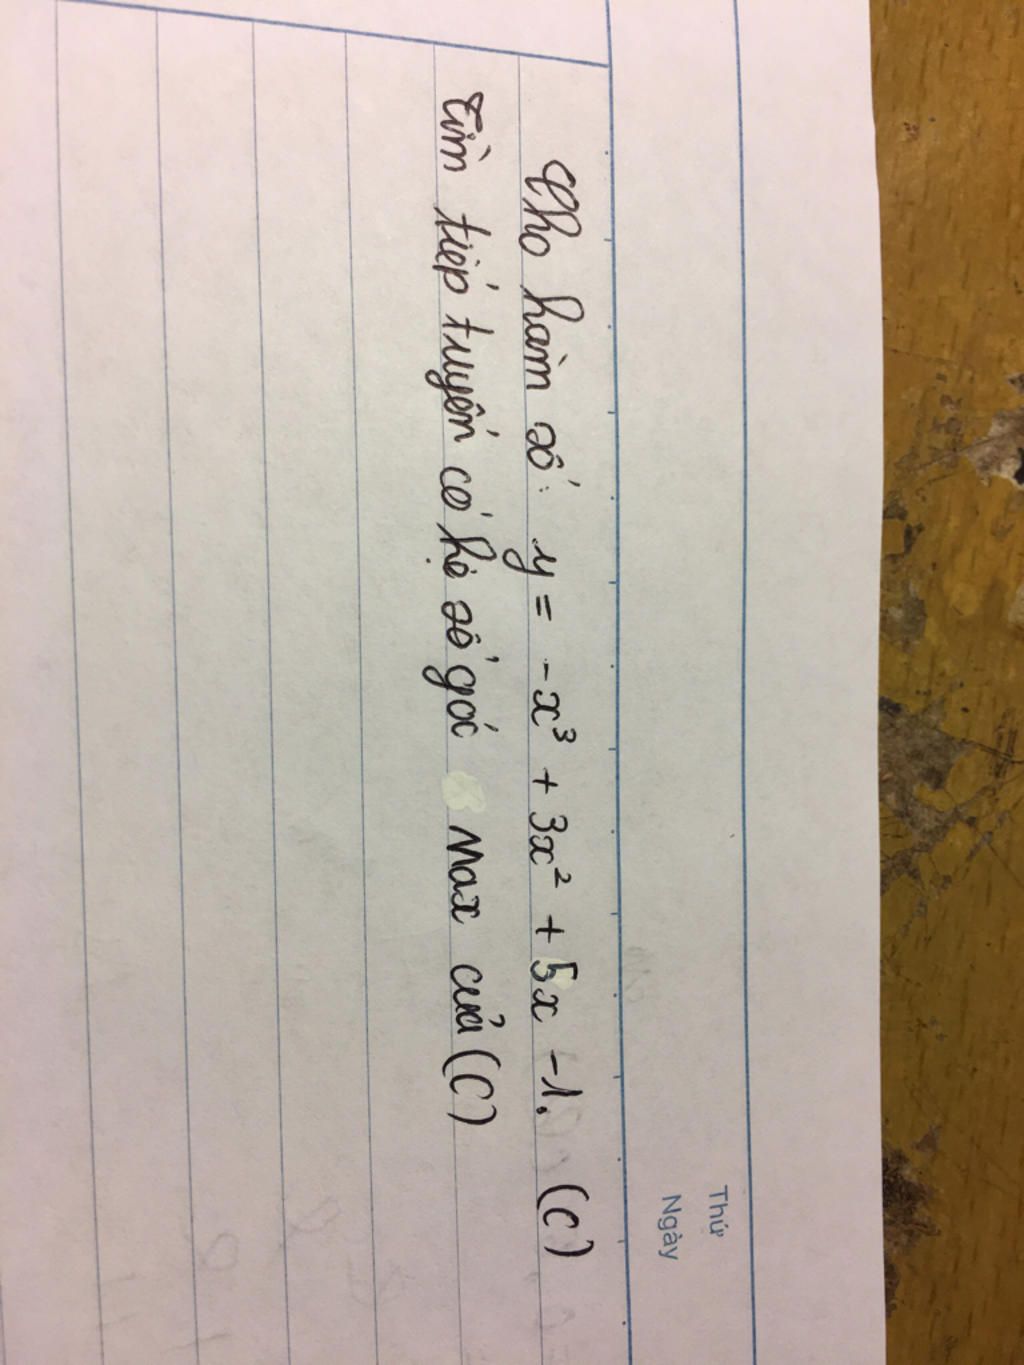 Thứ
Ngày
Cho hàm số: y = -x³ + 3x² + 5x - 1. (C)
Tìm tiếp tuyến có hệ số góc max của (C)